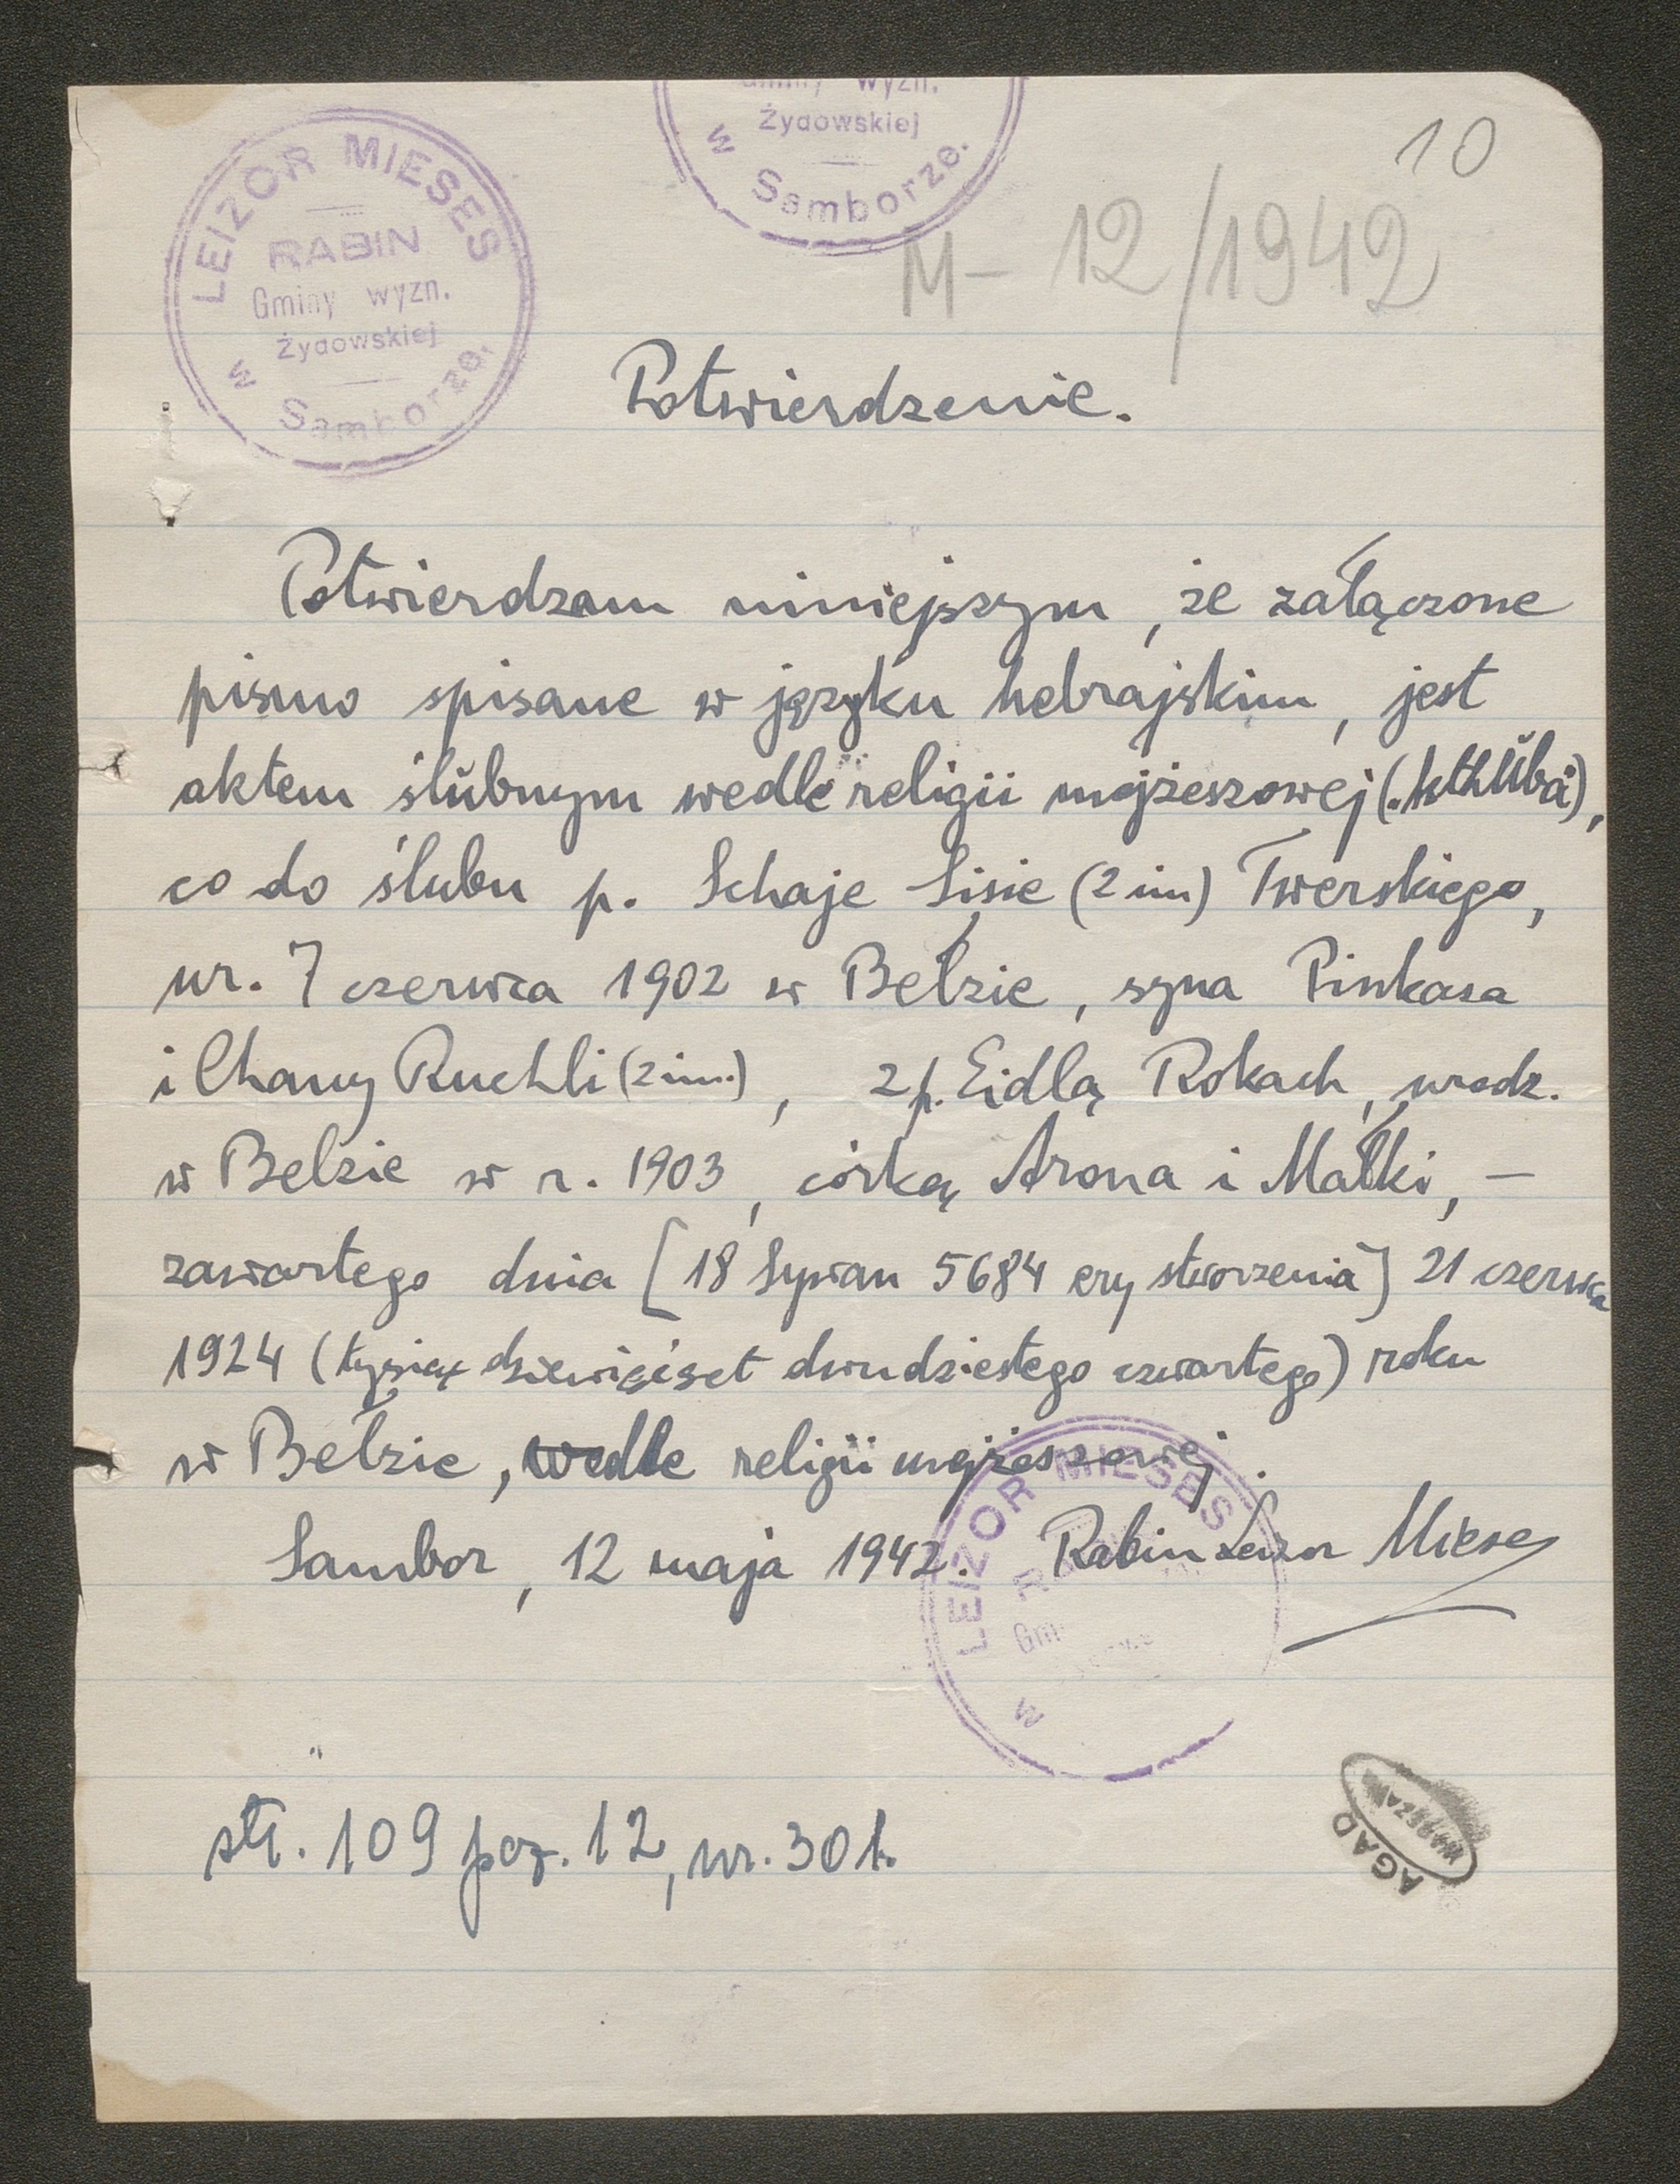 Gminy wyzn.
Żydowskiej
w Samborze.
LEIZOR MIESES
RABIN
Gminy wyzn.
Żydowskiej
w Samborze.
10
M - 12/1942
Potwierdzenie.
Potwierdzam niniejszym, że załączone
pismo spisane w języku hebrajskim, jest
aktem ślubnym wedle religii mojżeszowej (.kthŭba),
co do ślubu p. Schaje Sisie (2 im) Twerskiego,
ur. 7 czerwca 1902 w Bełzie, syna Pinkasa
i Chany Ruchli (2 im.), z p. Eidlą Rokach, urodz.
w Bełzie w r. 1903, córką Arona i Małki, –
zawartego dnia [18 Sywan 5684 ery stworzenia] 21 czerwca
1924 (tysiąc dziewięćset dwudziestego czwartego) roku
w Bełzie, wedle religii mojżeszowej.
Sambor, 12 maja 1942. Rabin Leizor Mieses
LEIZOR MIESES
w
str. 109 poz. 12, nr. 301.
AGAD
WARSZAWA